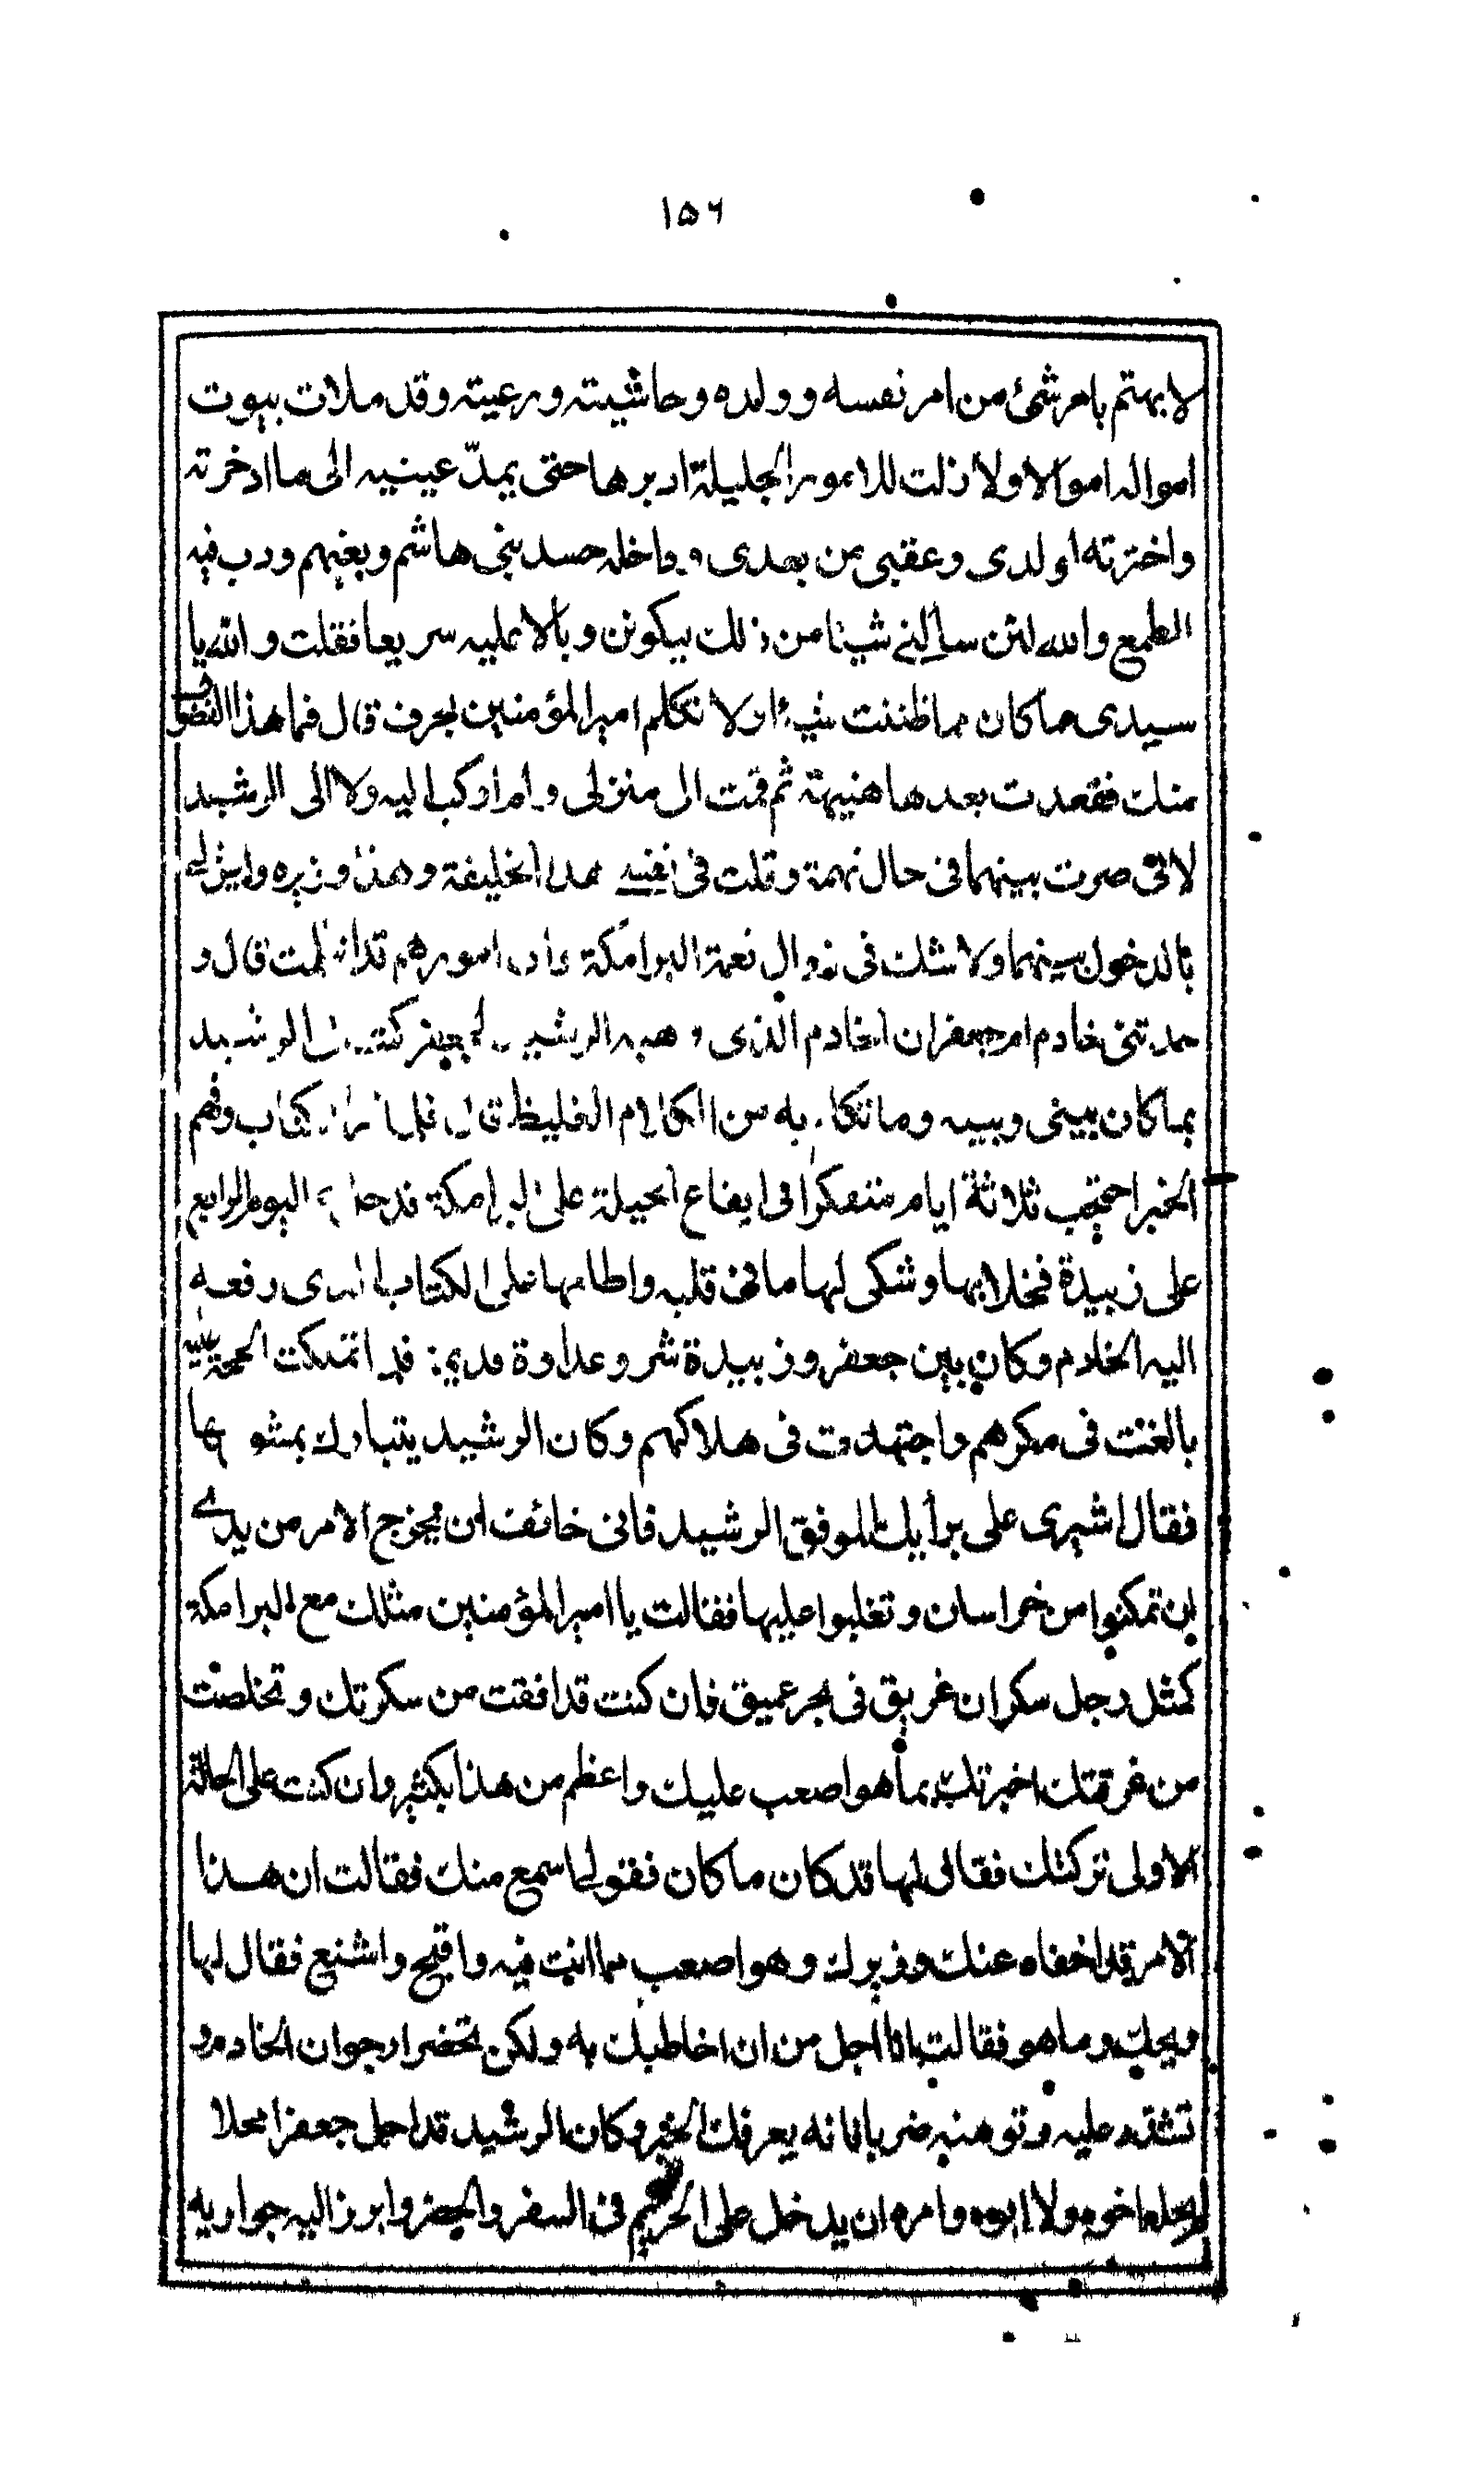 ١٥٦
لا يهتم بامر شئ من امر نفسه وولده وحاشيته ورعيته وقد ملات بيوت
امواله اموالا ولا زلت للامور الجليلة ادبرها حتى يمدّ عينيه الى ما ادخرته
واخترته اولدى وعقبى من بعدى وداخله حسد بنى هاشم وبغيهم ودب فيه
الطمع والله لئن سألنى شيئا من ذلك ليكونن وبالا عليه سريعا فقلت والله يا
سيدى ما كان مما ظننت شيء ولا تكلم امير المؤمنين بحرف قال فما هذا الفضول
منك فقعدت بعدها هنيهة ثم قمت الى منزلى ولم اركب اليه ولا الى الرشيد
لانى صرت بينهما فى حال تهمة وقلت فى نفسى هذا الخليفة وهذا وزيره وايش لى
بالدخول بينهما ولا شك فى زوال نعمة البرامكة وان امورهم قد قال و
حدثنى خادم ام جعفر ان الخادم الذى وهبه الرشيد لجعفر كتب الى الرشيد
بما كان بينى وبينه وما تكلم به من الكلام الغليظ قال فلما قرأ الكتاب وفهم
الخبر احتجب ثلاثة ايام متفكرا فى ايقاع الحيلة على البرامكة فدخل فى اليوم الرابع
على زبيدة فخلا بها وشكى لها ما فى قلبه واطلعها على الكتاب الذى رفعه
اليه الخادم وكان بين جعفر وزبيدة شر وعداوة قديمة فلما تملكت الحجة عليه
بالغت فى مكرهم واجتهدت فى هلاكهم وكان الرشيد يتبارك بمشورتها
فقال اشيرى على برأيك الموفق الرشيد فانى خائف ان يخرج الامر من يدى
ان تمكنوا من خراسان وتغلبوا عليها فقالت يا امير المؤمنين مثلك مع البرامكة
كمثل رجل سكران غريق فى بحر عميق فان كنت قد افقت من سكرتك وتخلصت
من غرقتك اخبرتك بما هو اصعب عليك واعظم من هذا بكثير وان كنت على الحالة
الاولى تركتك فقال لها قد كان ما كان فقولى اسمع منك فقالت ان هذا
الامر قد اخفاه عنك وزيرك وهو اصعب مما انت فيه واقبح واشنع فقال لها
ويحك وما هو فقالت انا اجل من ان اخاطبك به ولكن تحضر ارجوان الخادم و
تشدد عليه وتوهنه ضربا فانه يعرفك الخبر وكان الرشيد قد احل جعفرا محلا
لم يحله اخوه ولا ابوه وامره ان يدخل على الحريم فى السفر والحضر وابرز اليه جواريه